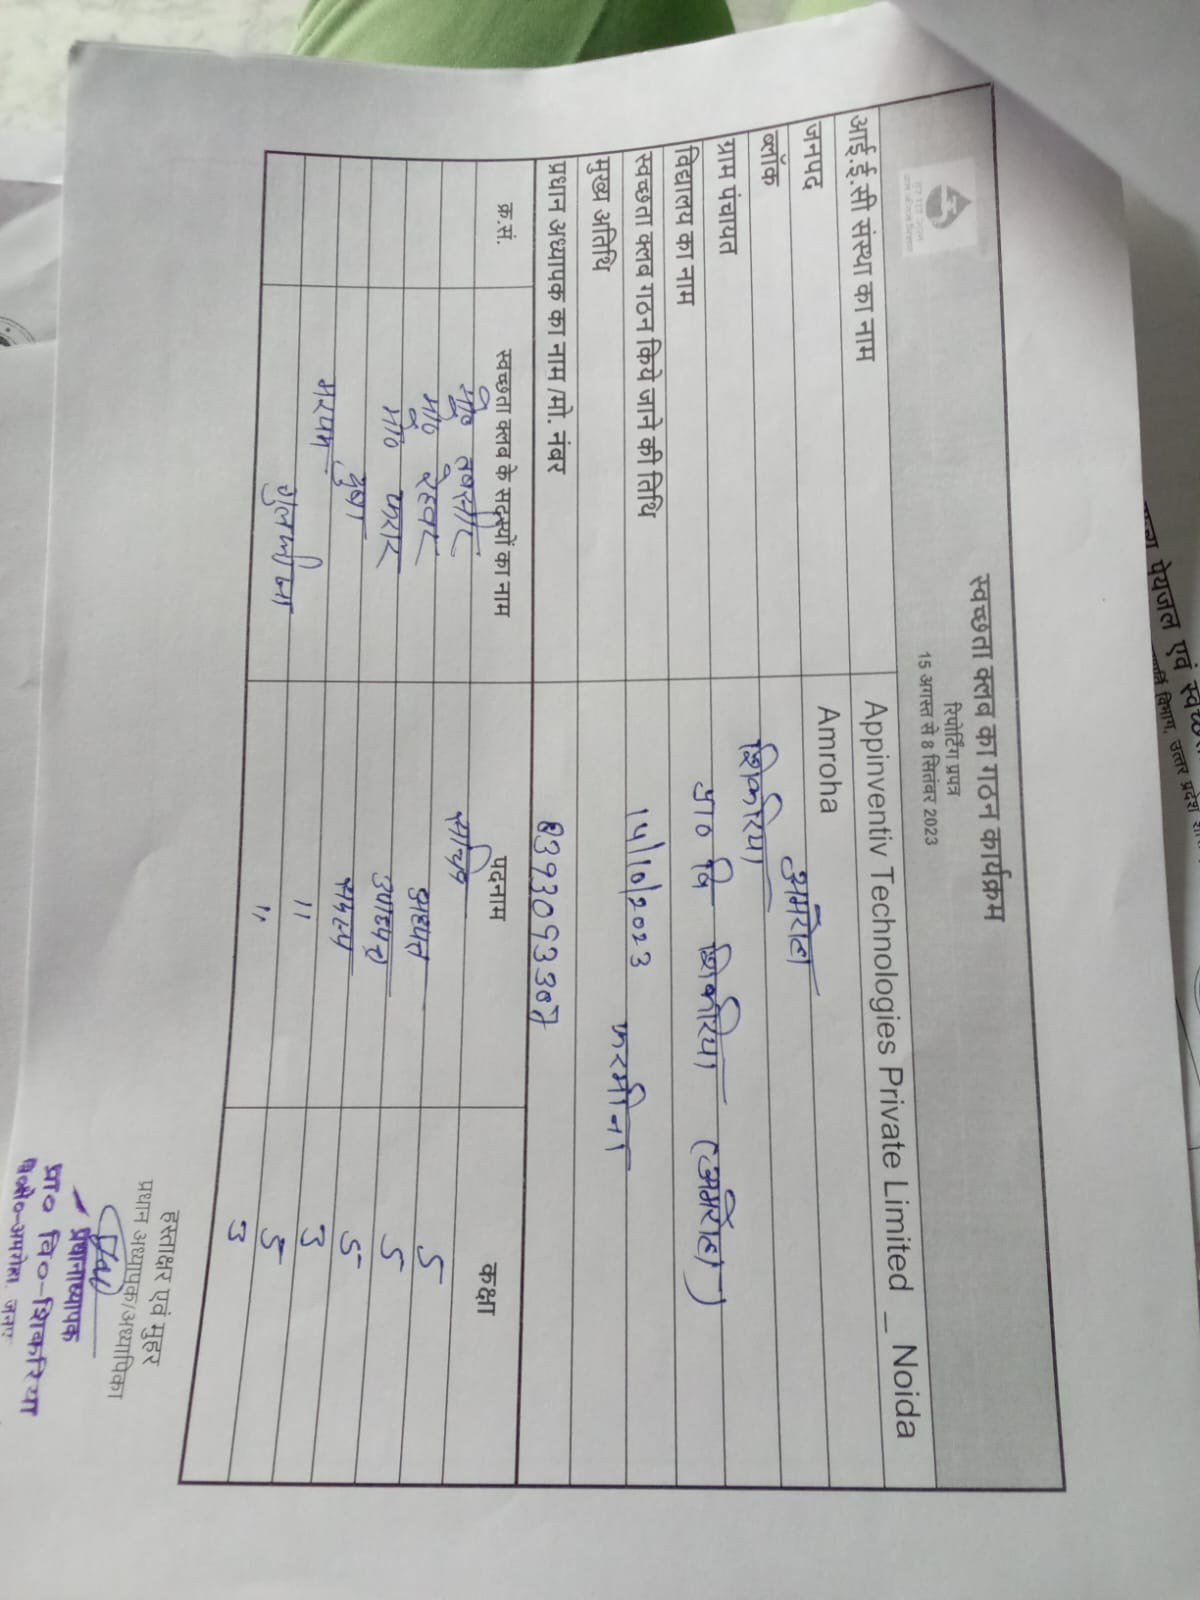 स्वच्छता क्लब का गठन कार्यक्रम
रिपोर्टिंग प्रपत्र
15 अगस्त से 8 सितंबर 2023
आई.ई.सी संस्था का नाम Appinventiv Technologies Private Limited _ Noida
जनपद Amroha
ब्लॉक अमरोहा
ग्राम पंचायत शिकरिया
विद्यालय का नाम प्रा० वि शिकरिया (अमरोहा)
स्वच्छता क्लब गठन किये जाने की तिथि 14/10/2023
मुख्य अतिथि
प्रधान अध्यापक का नाम /मो. नंबर फरमीना 8393093307
क्र.सं. स्वच्छता क्लब के सदस्यों का नाम पदनाम कक्षा
मो० सचिव 5
मो० रेहान अध्यक्ष 5
मो० उपाध्यक्ष 5
सदस्य 3
मरयम 〃 5
〃 3
हस्ताक्षर एवं मुहर
प्रधान अध्यापक/अध्यापिका
प्रधानाध्यापक
प्रा० वि०-शिकरिया
वि०क्षे०-अमरोहा, जनप
पेयजल एवं
विभाग, उत्तर प्रदेश